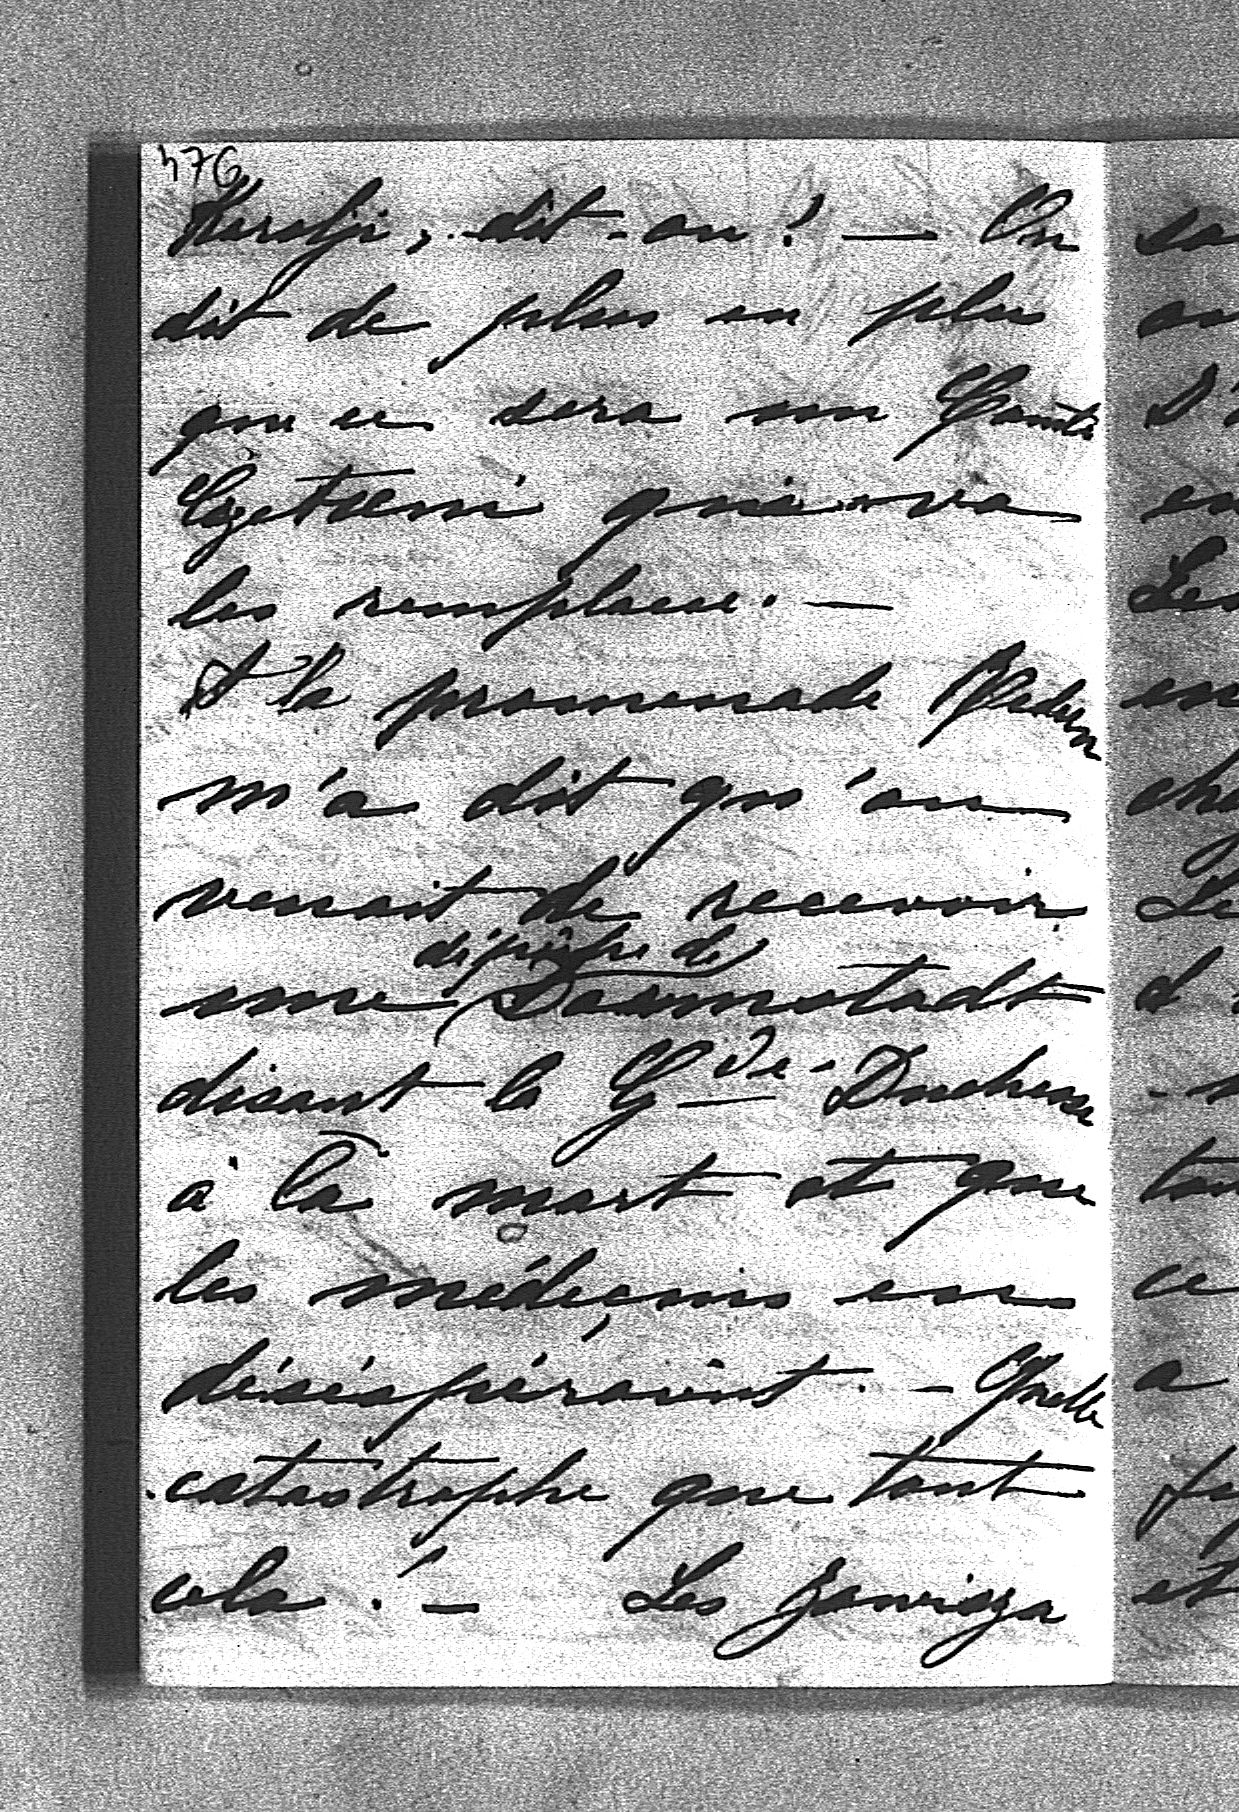 476
dit-on! — On
dit de plus en plus
que ce sera un Comte
qui va
les remplacer. —
A la promenade
m'a dit qu'on
venait de recevoir
une dépêche de Darmstadt
disant la Gde. Duchesse
à la mort et que
les médecins en
désespéraient. — Quelle
catastrophe que tout
cela! — Les